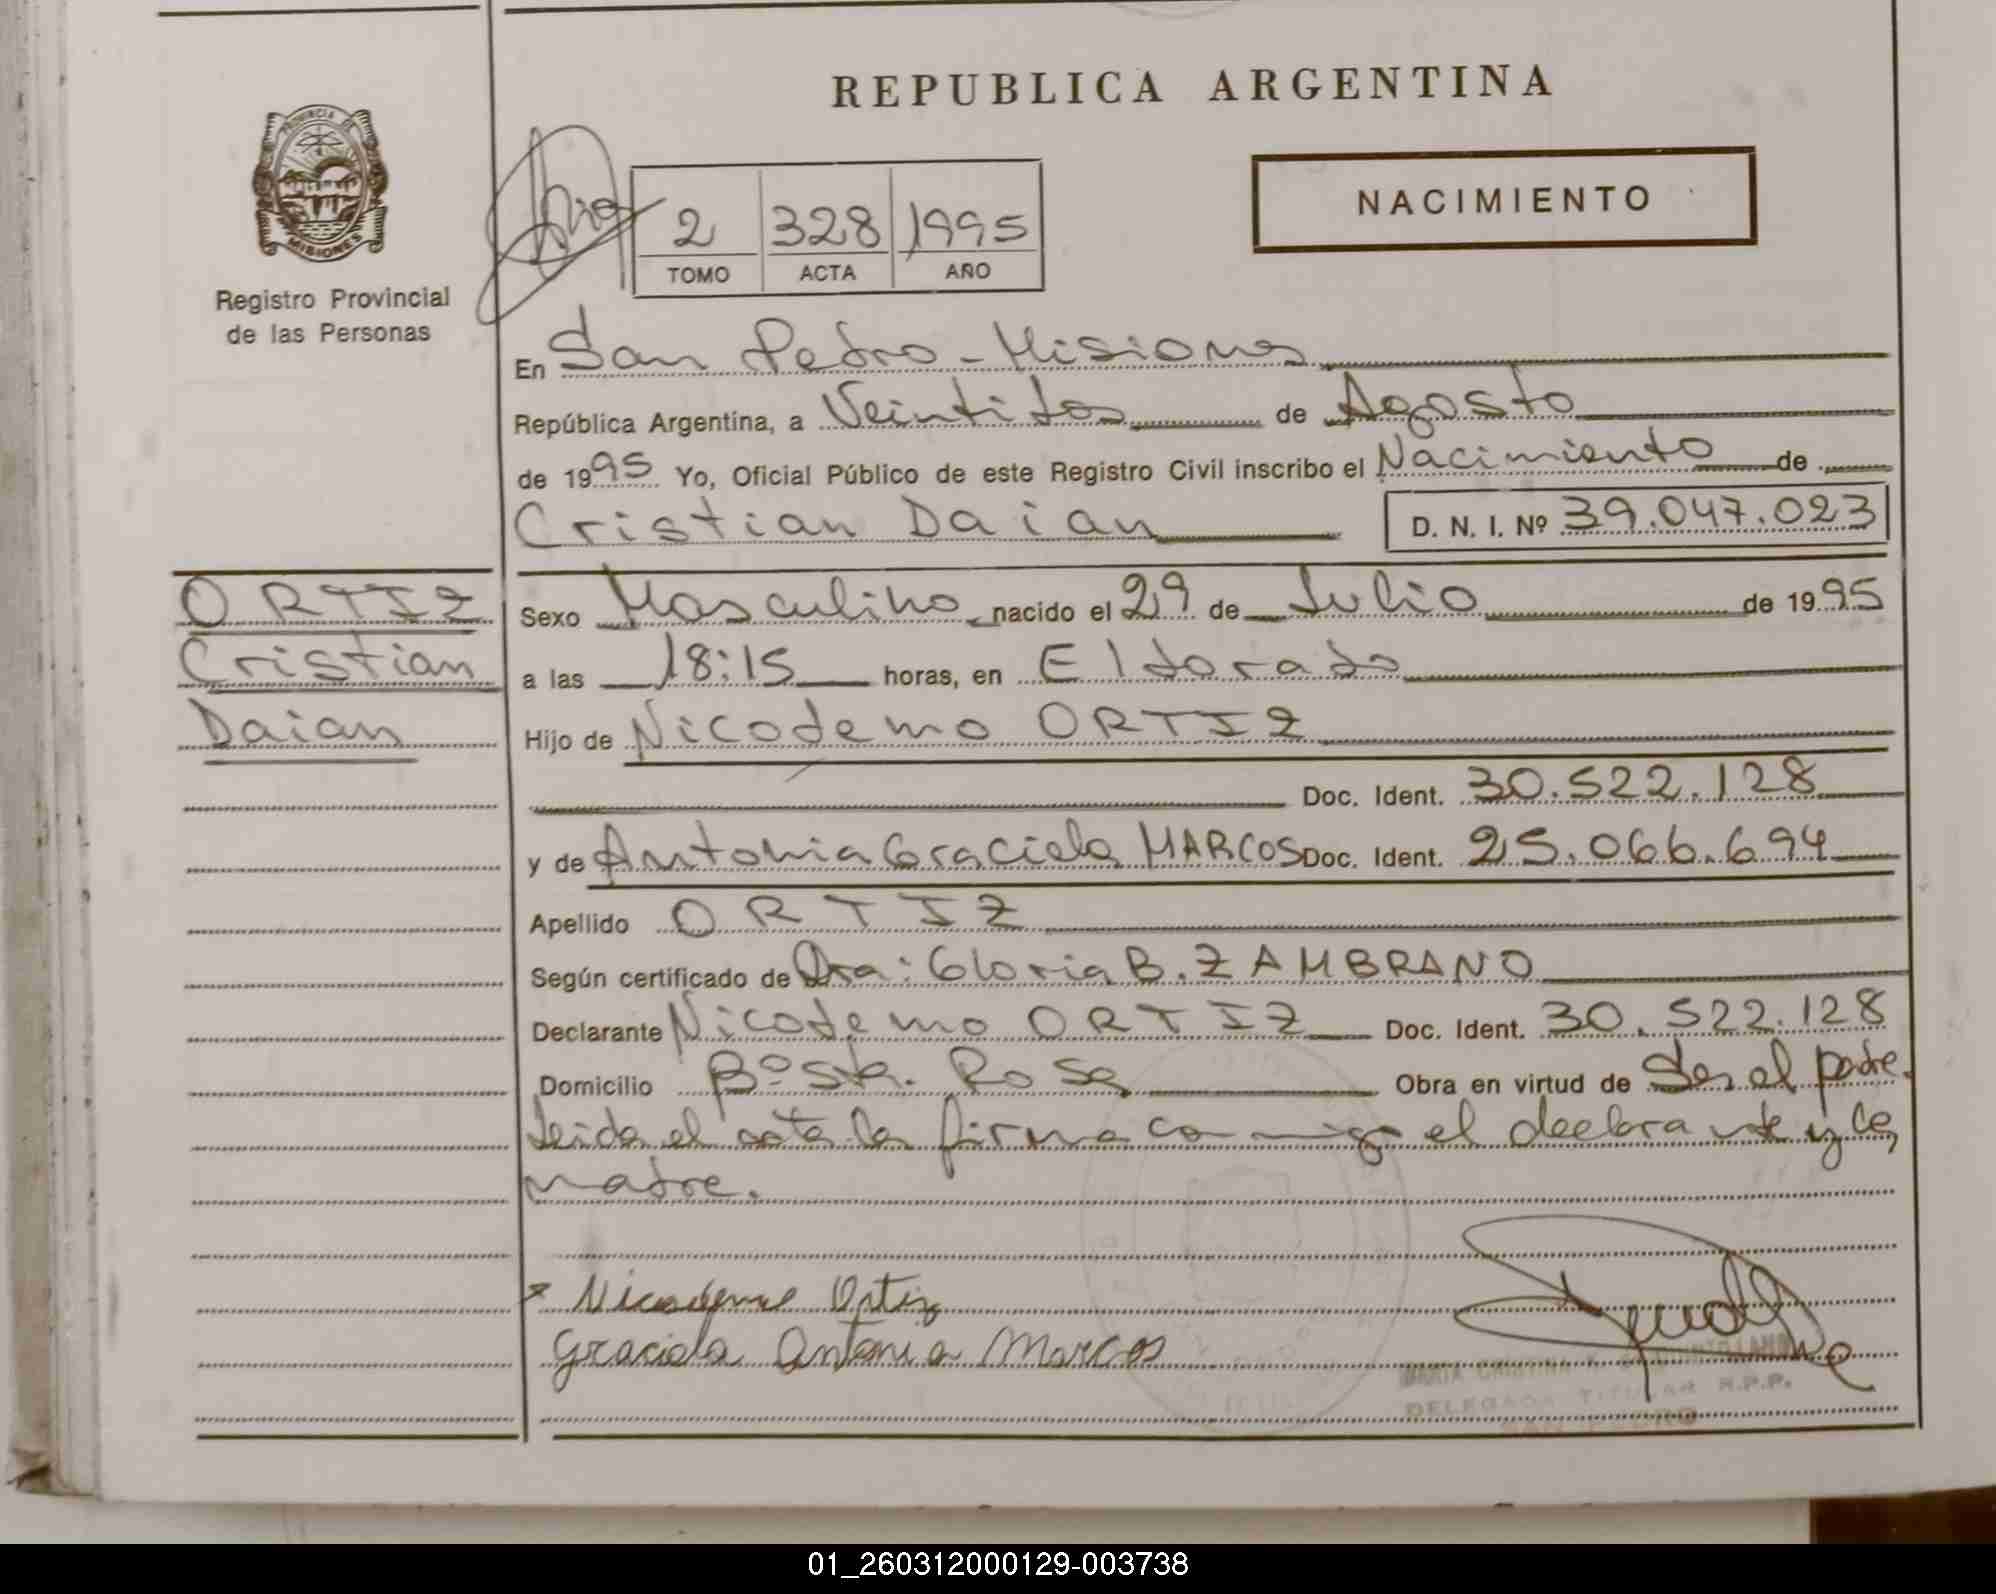 REPUBLICA ARGENTINA
PROVINCIA DE
MISIONES
Registro Provincial
de las Personas
NACIMIENTO
2 328 1995
TOMO ACTA AÑO
En San Pedro - Misiones
República Argentina, a Veintidos de Agosto
de 1995 Yo, Oficial Público de este Registro Civil inscribo el Nacimiento de
Cristian Daian D. N. I. Nº 39.047.023
ORTIZ
Cristian
Daian
Sexo Masculino nacido el 29 de Julio de 1995
a las 18:15 horas, en Eldorado
Hijo de Nicodemo ORTIZ
Doc. Ident. 30.522.128
y de Antonia Graciela MARCOS Doc. Ident. 25.066.694
Apellido ORTIZ
Según certificado de Dra: Gloria B. ZAMBRANO
Declarante Nicodemo ORTIZ Doc. Ident. 30.522.128
Domicilio Bº Sta. Rosa Obra en virtud de Ser el padre.
Leida el acta la firma conmigo el declarante y la
madre.
Nicodeme Ortiz
Graciela Antonia Marcos
MARIA CRISTINA
DELEGADA TITULAR R.P.P.
SAN PEDRO
01_260312000129-003738